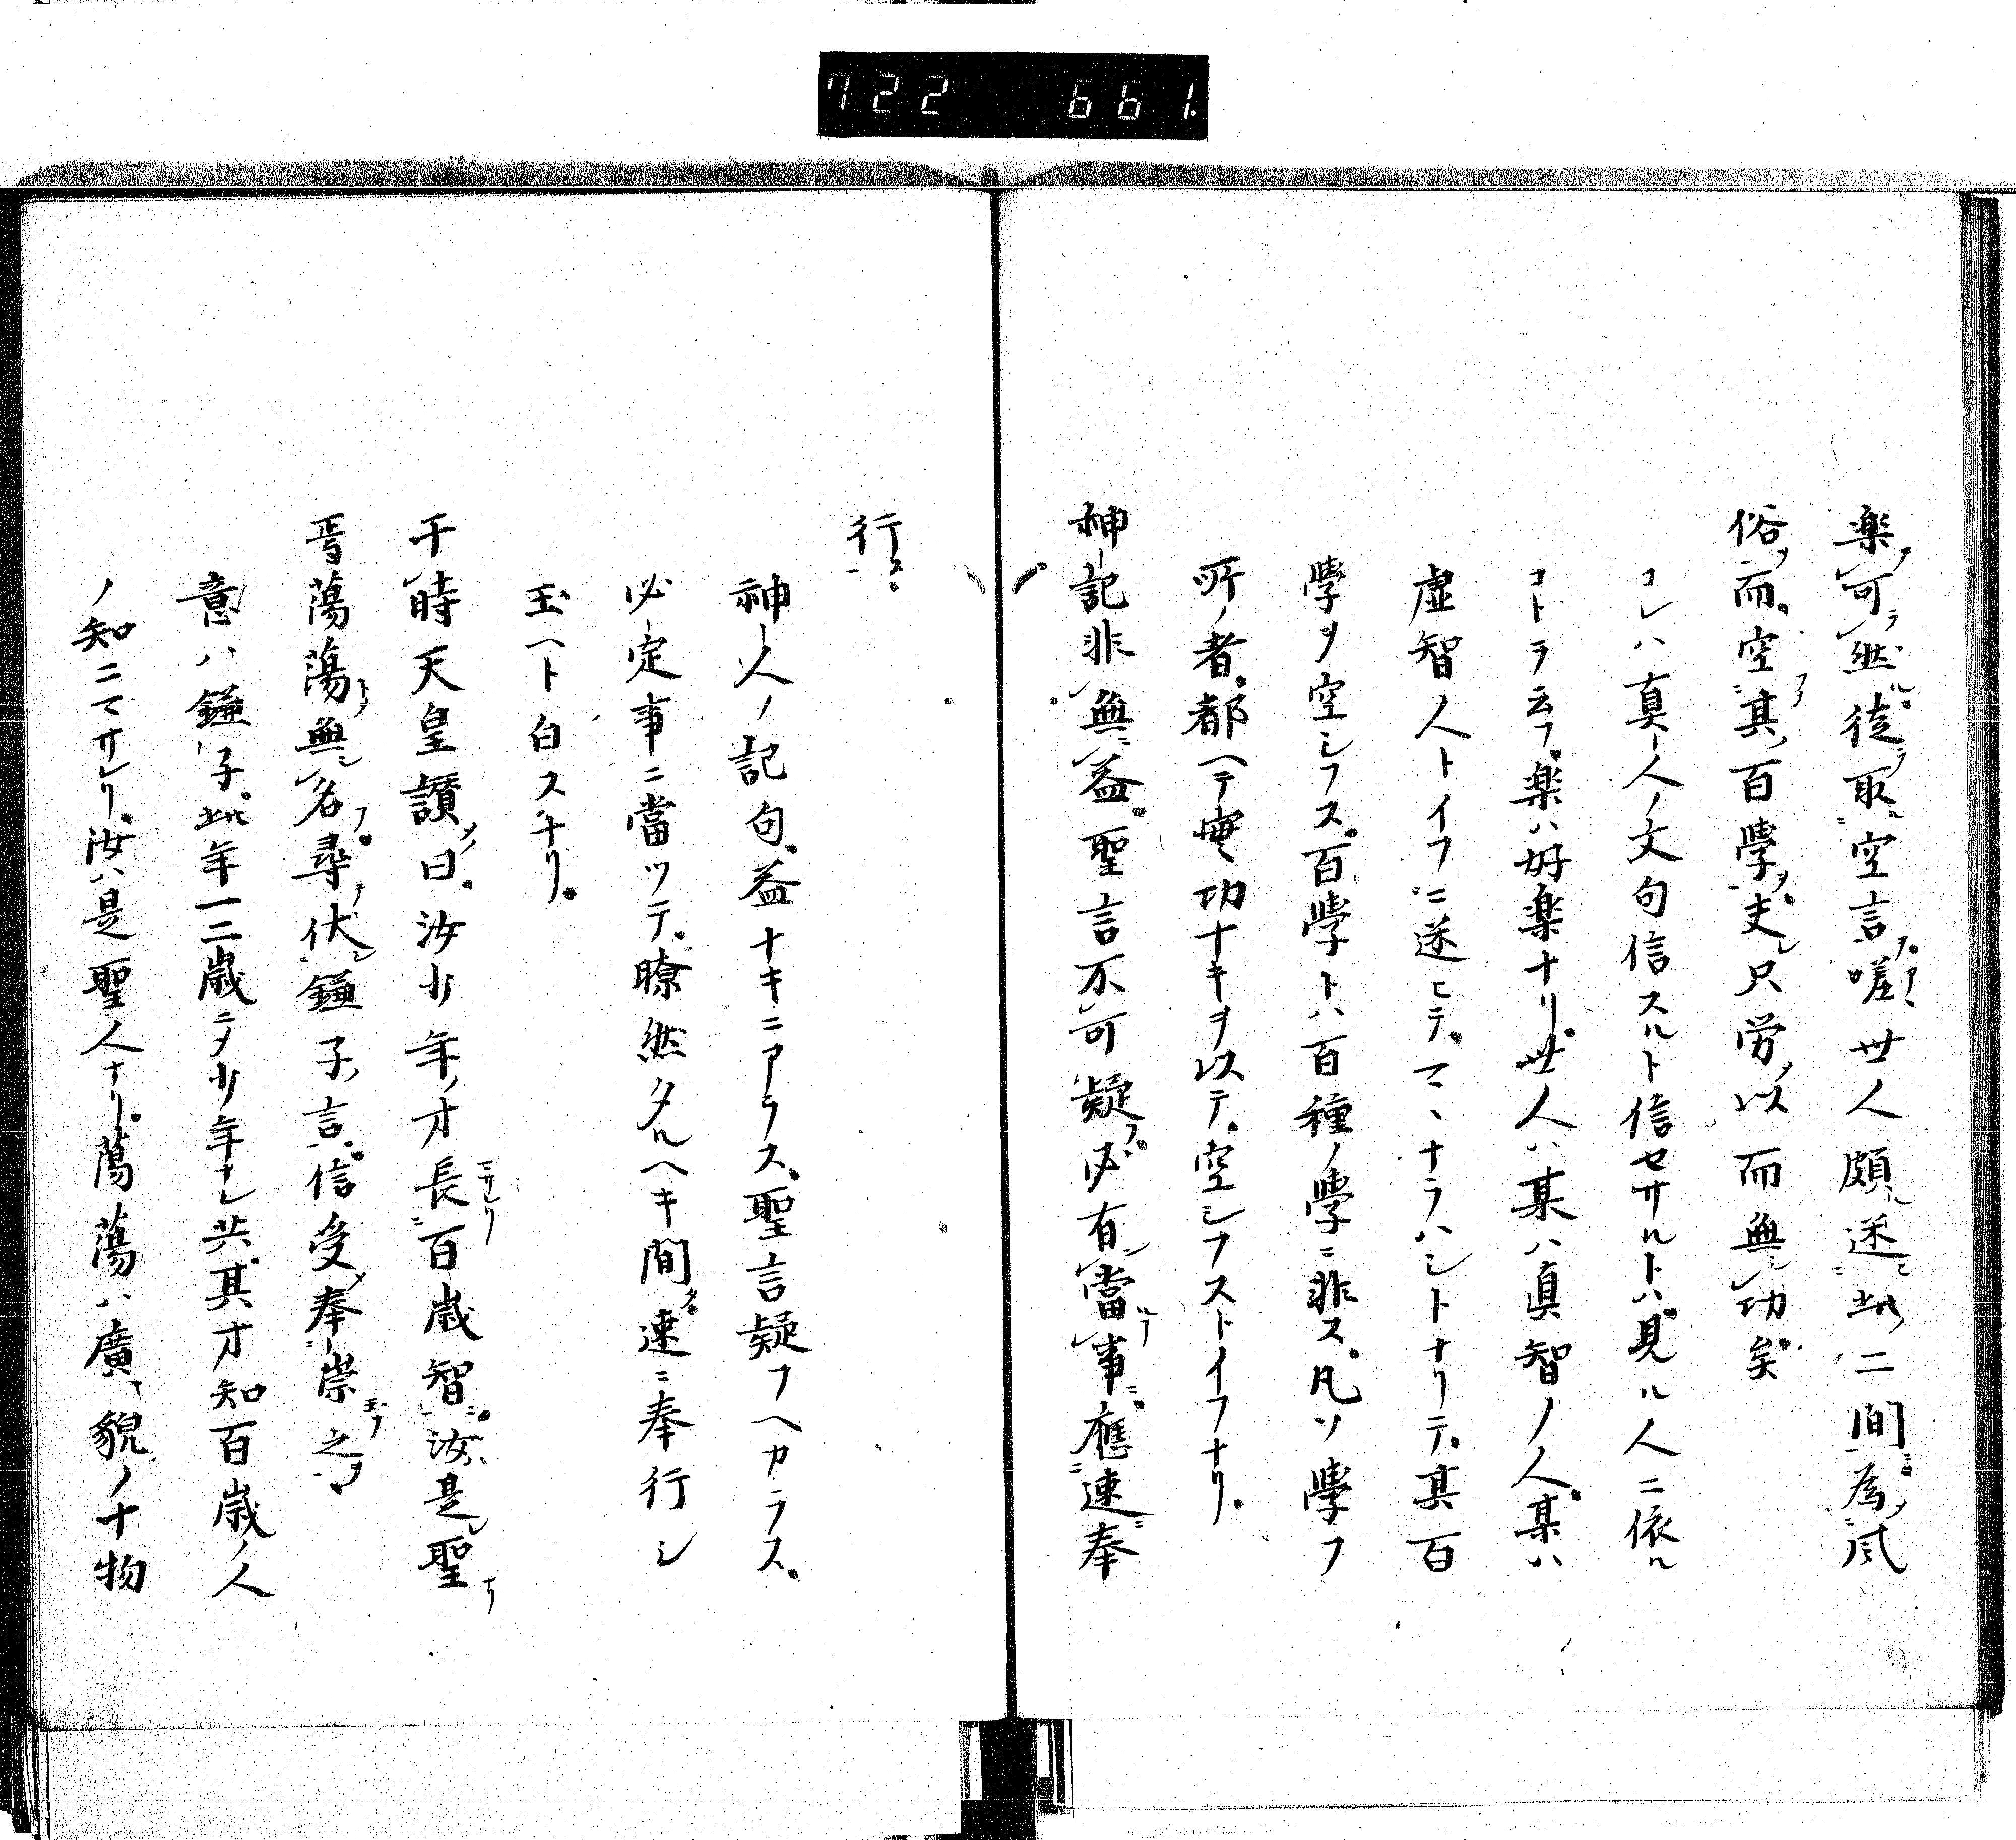 722 661.
楽可然徒取空言嗟世人頗迷此二間為風
俗而空其百學夫只労以而無功矣
コレハ真人ノ文句信スルト信セサルトハ見ル人ニ依ル
コトヲ云フ楽ハ好楽ナリ世人ハ某ハ真智ノ人某ハ
虚智ノ人トイフニ迷ヒテマヽナラハシトナリテ其百
學ヲ空シフス百學トハ百種ノ學ニ非ス凡ソ學フ
所ノ者都ヘテ実功ナキヲ以テ空シフストイフナリ
神記非無益聖言不可疑必有當事應速奉
行ス
神人ノ記句益ナキニアラス聖言疑フヘカラス
必定事ニ當ツテ瞭然タルヘキ間速ニ奉行シ
玉ヘト白スナリ
于時天皇讃曰汝少年ノ才長百歳智汝是聖
焉蕩蕩無名尋伏鎌子言信受奉崇之
意ハ鎌子此年一二歳ニタ少年ナレ共其才知百歳ノ人
ノ知ニマサレリ汝ハ是聖人ナリ蕩蕩ハ廣ノ貌ノナ物